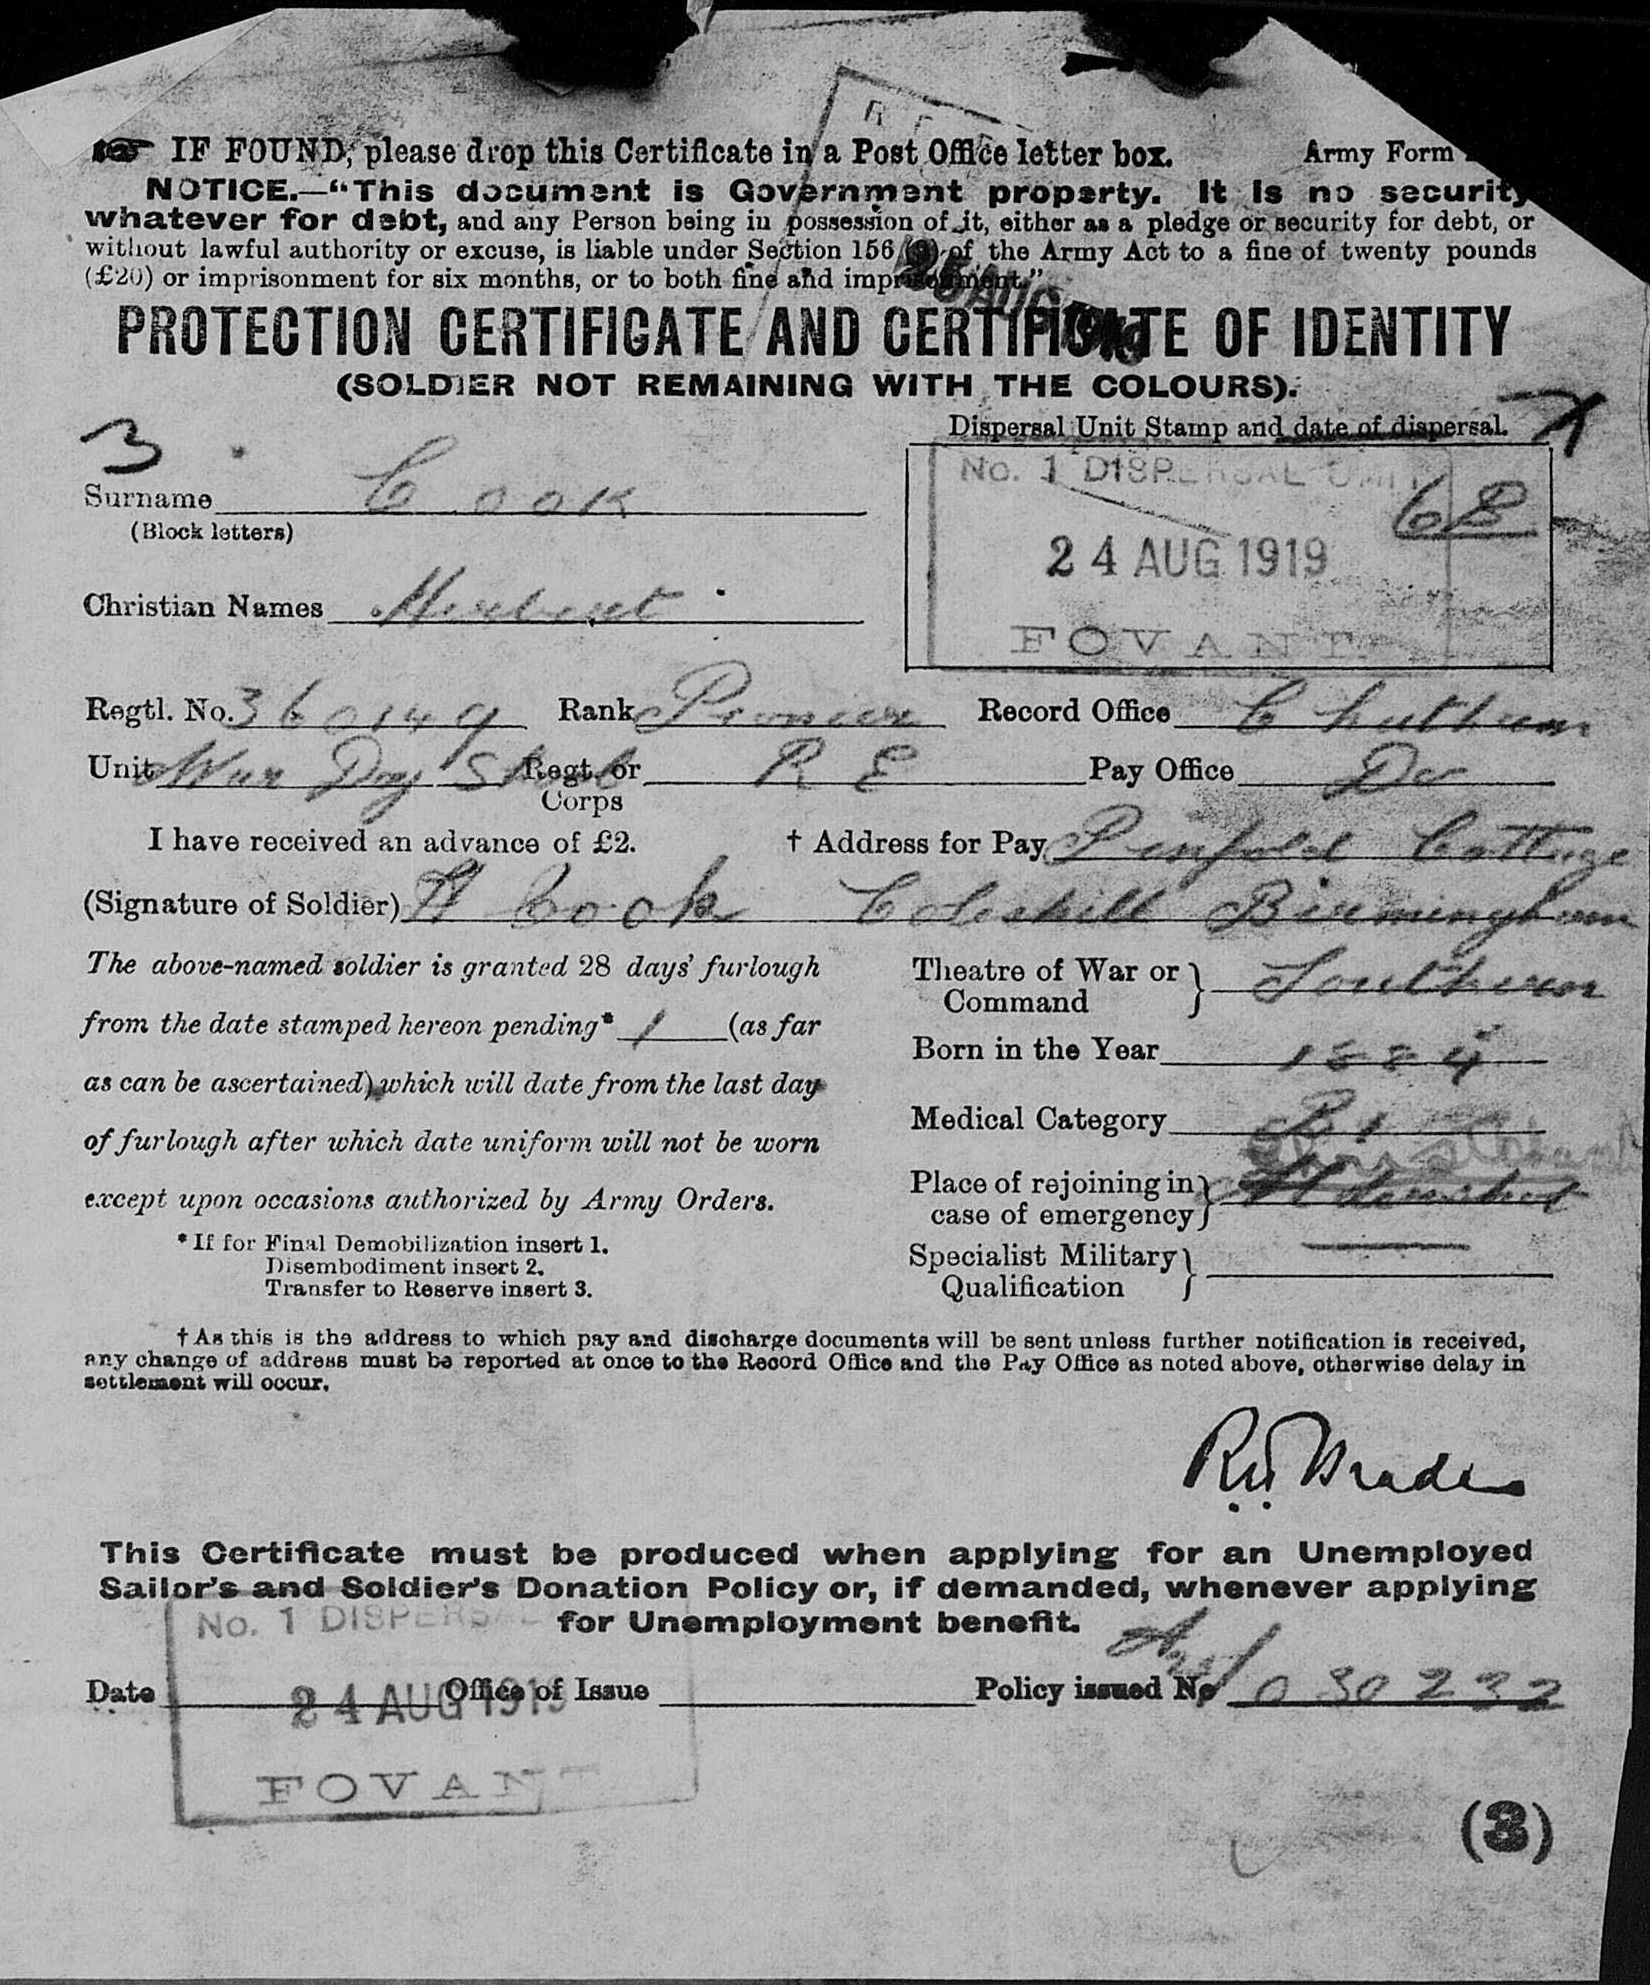 IF FOUND, please drop this Certificate in a Post Office letter box. Army Form
NOTICE.—"This document is Government property. It is no security
whatever for debt, and any Person being in possession of it, either as a pledge or security for debt, or
without lawful authority or excuse, is liable under Section 156 (9) of the Army Act to a fine of twenty pounds
(£20) or imprisonment for six months, or to both fine and imprisonment."
PROTECTION CERTIFICATE AND CERTIFICATE OF IDENTITY
(SOLDIER NOT REMAINING WITH THE COLOURS).
Dispersal Unit Stamp and date of dispersal.
3
No. 1 DISPERSAL UNIT
68
Surname Cook
(Block letters)
24 AUG 1919
Christian Names Herbert
FOVANT
Regtl. No. 360149 Rank Pioneer Record Office Chatham
Unit War Dog School Regt. or Corps R E Pay Office Do
I have received an advance of £2. † Address for Pay Penfold Cottage
(Signature of Soldier) H Cook Coleshill Birmingham
The above-named soldier is granted 28 days' furlough
from the date stamped hereon pending* 1 (as far
as can be ascertained) which will date from the last day
of furlough after which date uniform will not be worn
except upon occasions authorized by Army Orders.
*If for Final Demobilization insert 1.
Disembodiment insert 2.
Transfer to Reserve insert 3.
Theatre of War or Command } Southern
Born in the Year 1884
Medical Category B1
Place of rejoining in case of emergency }
Specialist Military Qualification } —
† As this is the address to which pay and discharge documents will be sent unless further notification is received,
any change of address must be reported at once to the Record Office and the Pay Office as noted above, otherwise delay in
settlement will occur.
This Certificate must be produced when applying for an Unemployed
Sailor's and Soldier's Donation Policy or, if demanded, whenever applying
for Unemployment benefit.
No. 1 DISPERSAL
Date 24 AUG 1919 Office of Issue Policy issued No 030232
FOVANT
(3)